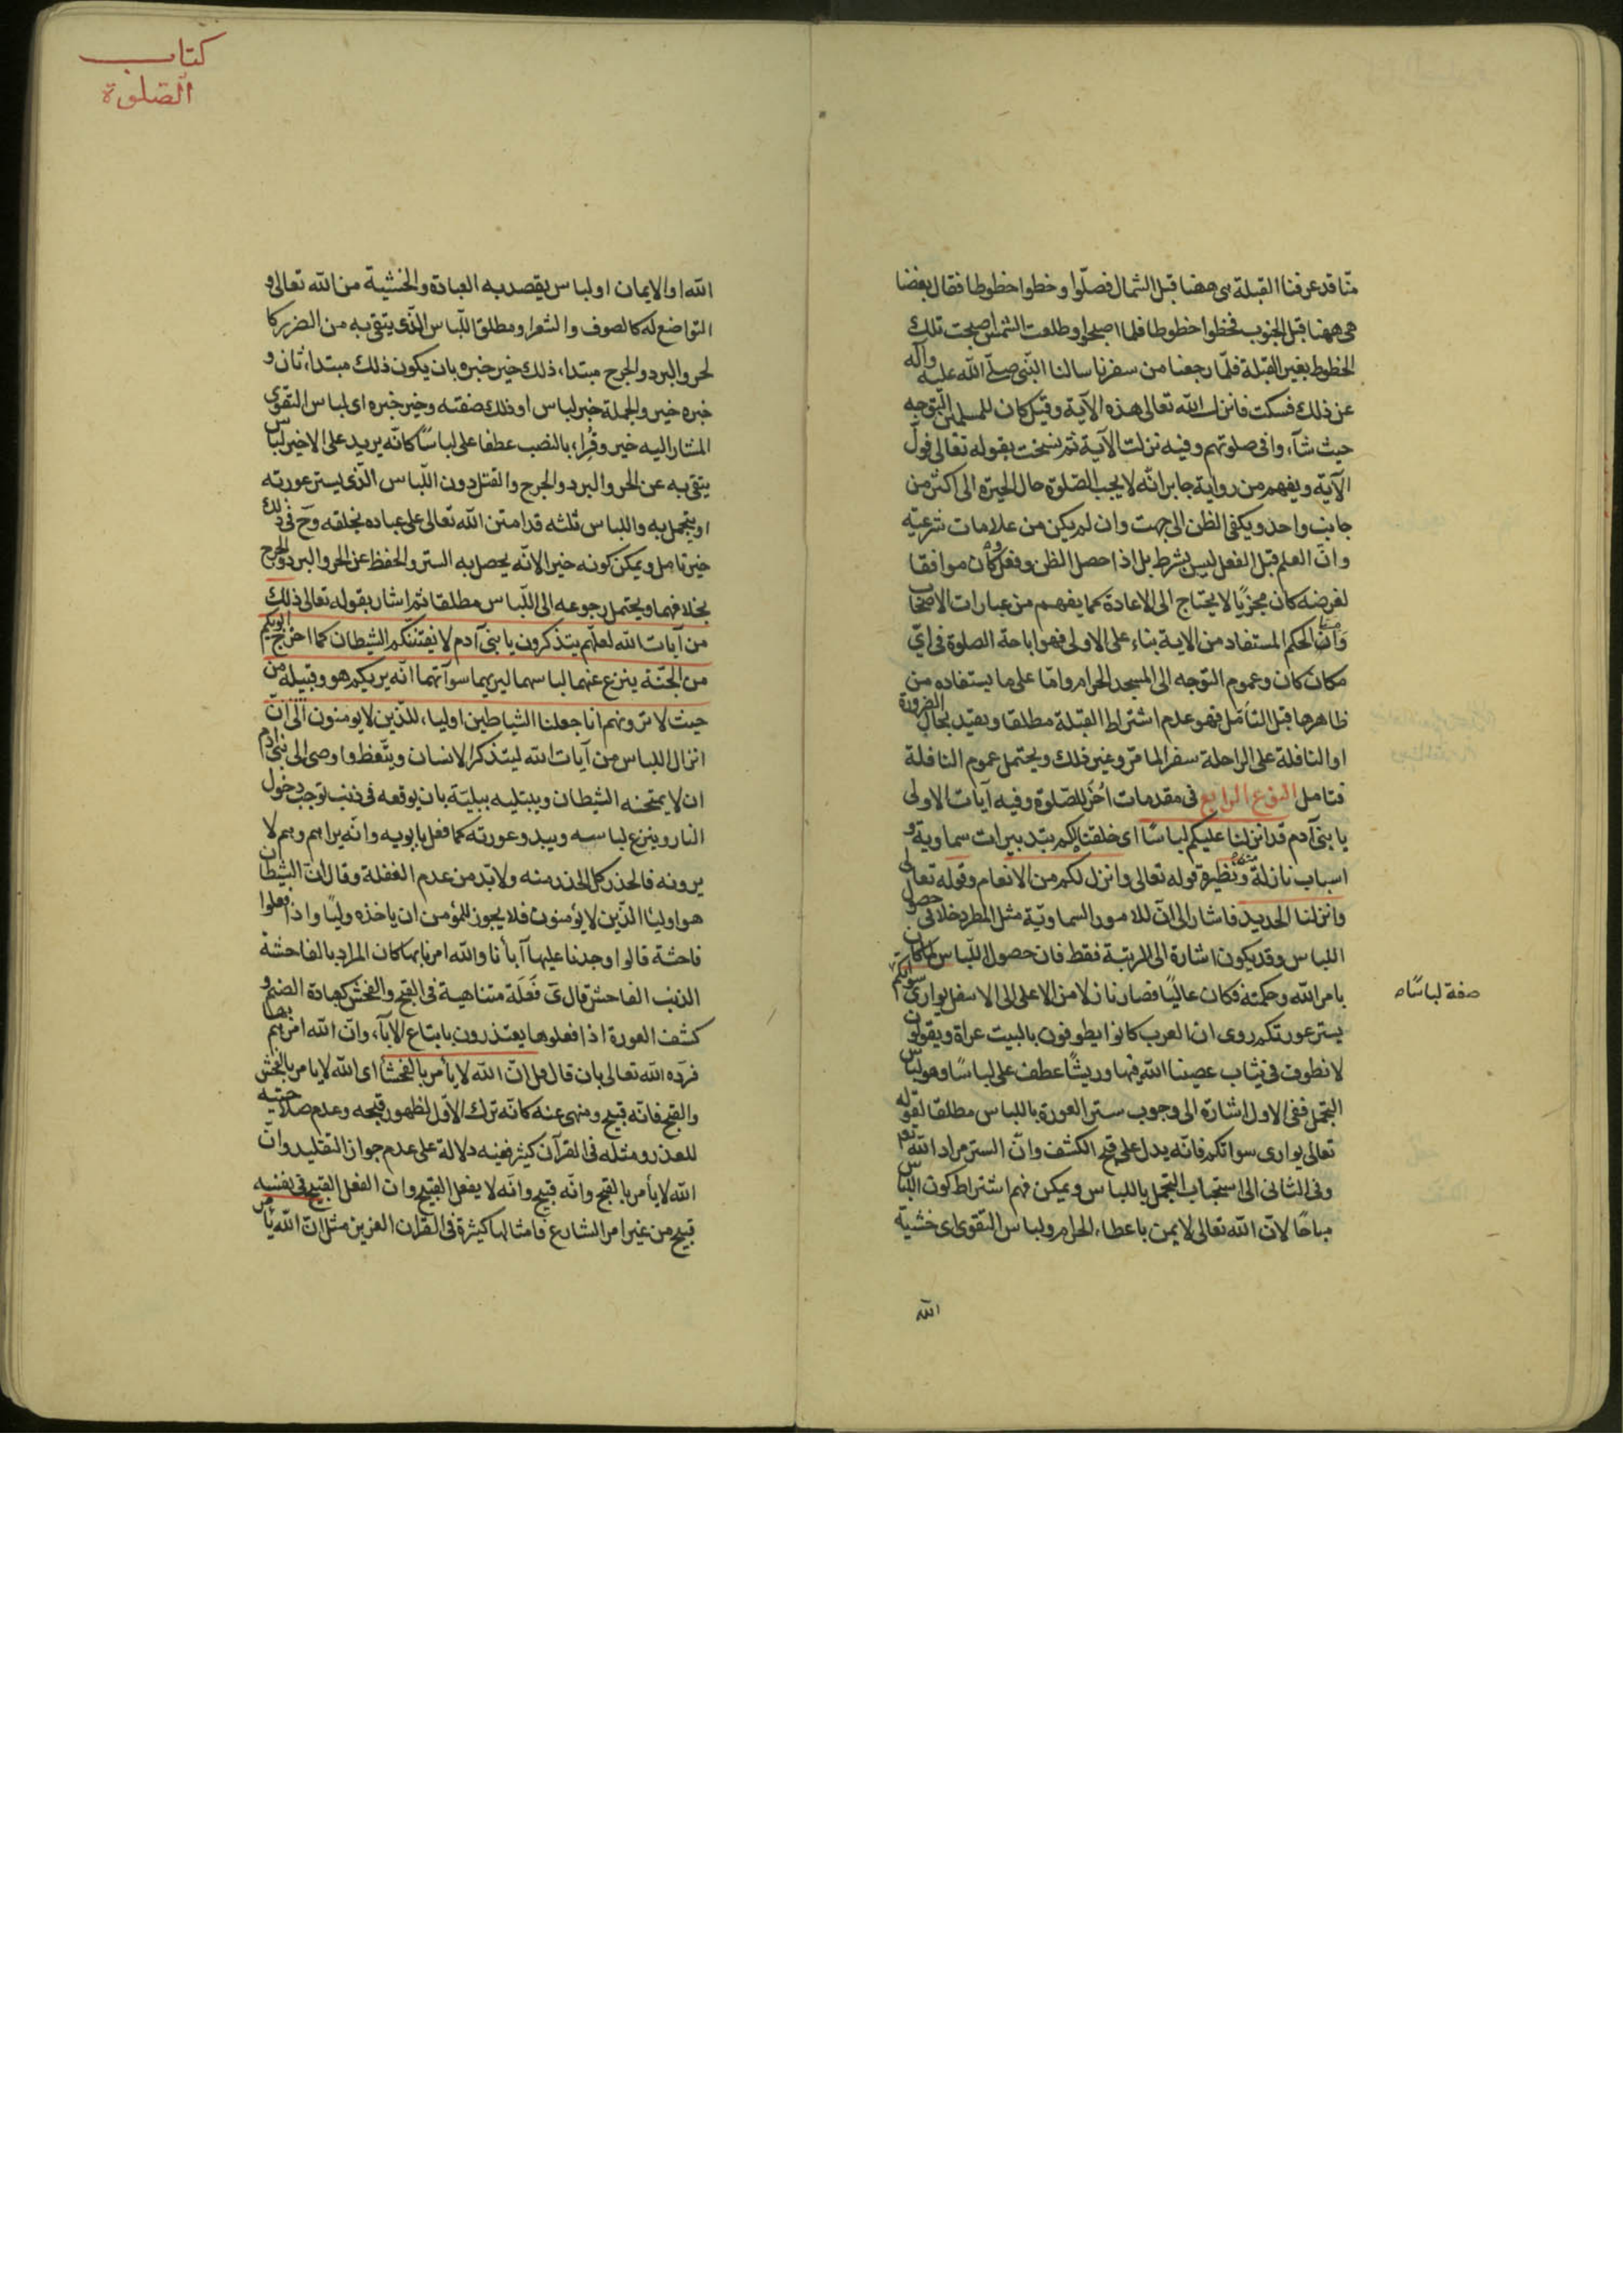 منّا قد عرفنا القبلة هى ههنا قبل الشمال فصلّوا وخطوا خطوطا فقال بعضنا
هى ههنا قبل الجنوب فخطوا خطوطا فلما اصبحوا وطلعت الشمس اصبحت تلك
الخطوط بغير القبلة فلمّا رجعنا من سفرنا سالنا النّبى صلّى اللّه عليه وآله
عن ذلك فسكت فانزل اللّه تعالى هذه الآية وقيل كان للمسلمين التوجه
حيث شآءوا فى صلوتهم وفيه نزلت الآية ثم نسخت بقوله تعالى فولّ
الآية ويفهم من رواية جابر انّه لا يجب الصّلوة حال الحيرة الى اكثر من
جانب واحد ويكفى الظن الى جهت وان لم يكن من علامات شرعيّة
وانّ العلم قبل الفعل ليس بشرط بل اذا حصل الظن وفعل وكان موافقا
لغرضه كان مجزيًا لا يحتاج الى الاعادة كما يفهم من عبارات الاصحاب
وامّا الحكم المستفاد من الاية بناء على الاولى فهو اباحة الصلوة فى اىّ
مكان كان وعموم التوجه الى المسجد الحرام وامّا على ما يستفاد من
ظاهرها قبل التأمّل فهو عدم اشتراط القبلة مطلقا ويقيّد بحال الضرورة
او النافلة على الراحلة سفرا لما مرّ وغير ذلك ويحتمل عموم النافلة
فتامل النوع الرابع فى مقدمات اُخَر للصّلوة وفيه آيات الاولى
يا بنى آدم قد انزلنا عليكم لباسًا اى خلقنا لكم بتدبيرات سماوية و
اسباب نازلة منه ونظيره قوله تعالى وانزل لكم من الانعام وقوله تعالى
وانزلنا الحديد فاشار الى انّ للامور السماويّة مثل المطر دخلا فى حصول
اللباس وقد يكون اشارة الى المرتبة فقط فان حصول اللّباس لما كان
بامر اللّه وحكمته فكان عاليًا فصار نازلا من الاعلى الى الاسفل يوارى سوآتكم
صفة لباسًا
يستر عورتكم روى انّ العرب كانوا يطوفون بالبيت عراة ويقولون
لا نطوف فى ثياب عصينا اللّه فيها وريشًا عطف على لباسًا وهو لباس
التجمل ففى الاول اشارة الى وجوب ستر العورة باللباس مطلقا لقوله
تعالى يوارى سواتكم فانّه يدل على قبح الكشف وانّ الستر مراد اللّه تعالى
وفى الثانى الى استحباب التجمل باللباس ويمكن فهم اشتراط كون اللباس
مباحًا لانّ اللّه تعالى لا يمن باعطاء الحرام ولباس التقوى اى خشية
اللّه
كتاب
الصّلوة
اللّه او الايمان او لباس يقصد به العبادة والخشية من اللّه تعالى و
التواضع له كالصوف والشعر او مطلق اللّباس الّذى يتقى به من الضرر كا
لحر والبرد والجرح مبتداء ذلك خير خبره بان يكون ذلك مبتداء ثان و
خبره خير والجملة خبر لباس او ذلك صفته وخير خبره اى لباس التقوى
المشار اليه خير وقُرء بالنصب عطفا على لباسًا كانّه يريد على الاخير لباس
يتقى به عن الحر والبرد والجرح والقتل دون اللّباس الّذى يستر عورته
او يتجمل به واللباس ثلثه قد امتن اللّه تعالى على عباده بخلقه وح فى ذلك
خير تامل ويمكن كونه خيرا لانّه يحصل به الستر والحفظ عن الحر والبرد والجرح
بخلافهما ويحتمل رجوعه الى اللّباس مطلقا ثم اشار بقوله تعالى ذلك
من آيات اللّه لعلّهم يتذكرون يا بنى آدم لا يفتننّكم الشيطان كما اخرج ابويكم
من الجنّة ينزع عنهما لباسهما ليريهما سوآتهما انّه يريكم هو وقبيله من
حيث لا ترونهم انا جعلنا الشياطين اولياء للّذين لا يومنون الى انّ
انزال اللباس من آيات اللّه ليتذكر الانسان ويتّعظ واوصى الى بنى آدم
ان لا يمتحنه الشيطان ويبتليه ببليّة بان يوقعه فى ذنب توجب دخول
النار وينزع لباسه ويبدو عورته كما فعل بابويه وانّه يراهم وهم لا
يرونه فالحذر كل الحذر منه ولا بدّ من عدم الغفلة وقال انّ الشيطان
هو اولياء الّذين لا يؤمنون فلا يجوز للمؤمن ان ياخذه وليًا واذا فعلوا
فاحشة قالوا وجدنا عليها آبآءنا واللّه امرنا بها كان المراد بالفاحشة
الذنب الفاحش قال ىَ فَعْلَة متناهية فى القبح والفحش كعبادة الصنم و
كشف العورة اذا فعلوها يعتذرون باتباع الآباء وانّ اللّه امرهم بها
فردّه اللّه تعالى بان قال قل انّ اللّه لا يأمر بالفحشآء اى اللّه لا يامر بالفحش
والقبح فانّه قبيح ومنهى عنه كانّه ترك الاوّل لظهور قبحه وعدم صلاحيته
للعذر ومثله فى القرآن كثير ففيه دلالة على عدم جواز التقليد وانّ
اللّه لا يأمر بالقبح وانّه قبيح وانّه لا يفعل القبيح وان الفعل القبيح فى نفسه
قبيح من غير امر الشارع فامثالها كثيرة فى القران العزيز مثل انّ اللّه يأمر